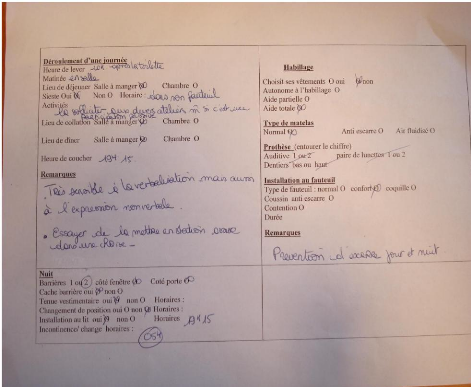 Déroulement d'une journée
Heure de lever 10h après la toilette
Matinée en salle
Lieu de déjeuner Salle à manger O Chambre O
Sieste Oui O Non O Horaire : dans son fauteuil
Activités
Lieu de collation Salle à manger O Chambre O
Lieu de dîner Salle à manger O Chambre O
Heure de coucher 19H 15
Remarques
- Très sensible à la verbalisation mais aussi
à l'expression non verbale.
• Essayer de la mettre en position assise
dans une chaise -
Nuit
Barrières 1 ou 2 côté fenêtre O Coté porte O
Cache barrière oui O non O
Tenue vestimentaire oui O non O Horaires :
Changement de position oui O non O Horaires :
Installation au lit oui O non O Horaires 19H15
Incontinence/ change horaires :
05H
Habillage
Choisit ses vêtements O oui O non
Autonome à l'habillage O
Aide partielle O
Aide totale O
Type de matelas
Normal O Anti escarre O Air fluidisé O
Prothèse (entourer le chiffre)
Auditive 1 ou 2 paire de lunettes 1 ou 2
Dentiers bas ou haut
Installation au fauteuil
Type de fauteuil : normal O confort O coquille O
Coussin anti escarre O
Contention O
Durée
Remarques
Prévention d'escarre jour et nuit